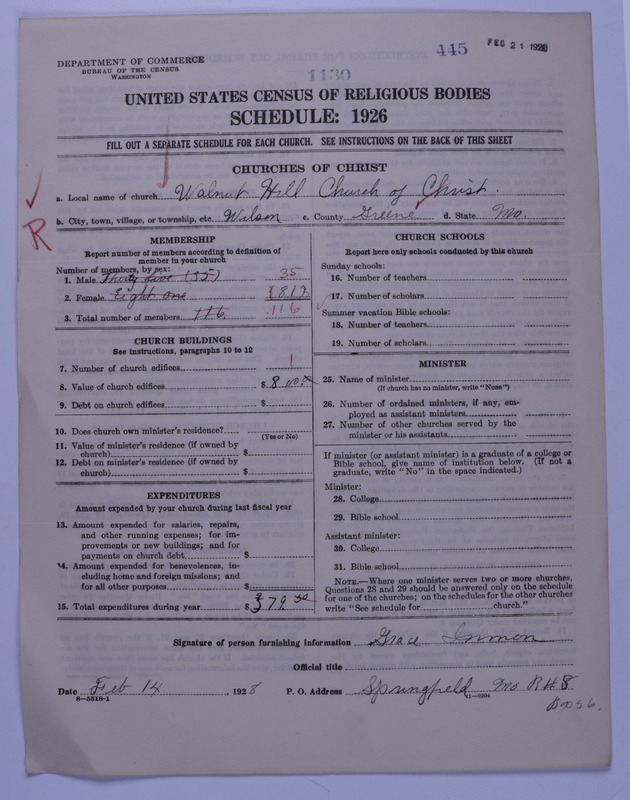 445 FEB 21 1928
DEPARTMENT OF COMMERCE
BUREAU OF THE CENSUS
WASHINGTON
1130
UNITED STATES CENSUS OF RELIGIOUS BODIES
SCHEDULE: 1926
FILL OUT A SEPARATE SCHEDULE FOR EACH CHURCH. SEE INSTRUCTIONS ON THE BACK OF THIS SHEET
CHURCHES OF CHRIST
a. Local name of church Walnut Hill Church of Christ.
b. City, town, village, or township, etc. Wilson c. County Greene d. State Mo.
R
MEMBERSHIP
Report number of members according to definition of
member in your church
Number of members, by sex:
1. Male Thirty five (35) 35
2. Female Eight one 81
3. Total number of members 116 116
CHURCH BUILDINGS
See instructions, paragraphs 10 to 12
7. Number of church edifices 1
8. Value of church edifices $
9. Debt on church edifices $
10. Does church own minister's residence?
(Yes or No)
11. Value of minister's residence (if owned by
church) $
12. Debt on minister's residence (if owned by
church) $
EXPENDITURES
Amount expended by your church during last fiscal year
13. Amount expended for salaries, repairs,
and other running expenses; for im-
provements or new buildings; and for
payments on church debt $
14. Amount expended for benevolences, in-
cluding home and foreign missions; and
for all other purposes $
15. Total expenditures during year $
CHURCH SCHOOLS
Report here only schools conducted by this church
Sunday schools:
16. Number of teachers
17. Number of scholars
Summer vacation Bible schools:
18. Number of teachers
19. Number of scholars
MINISTER
25. Name of minister
(If church has no minister, write "None")
26. Number of ordained ministers, if any, em-
ployed as assistant ministers
27. Number of other churches served by the
minister or his assistants
If minister (or assistant minister) is a graduate of a college or
Bible school, give name of institution below. (If not a
graduate, write "No" in the space indicated.)
Minister:
28. College
29. Bible school
Assistant minister:
30. College
31. Bible school
NOTE.—Where one minister serves two or more churches,
Questions 28 and 29 should be answered only on the schedule
for one of the churches; on the schedules for the other churches
write "See schedule for church."
Signature of person furnishing information Grace Inmon
Official title
Date Feb 14, 1928 P. O. Address Springfield Mo R#8
8-5518-1 11-9204
Box 56.